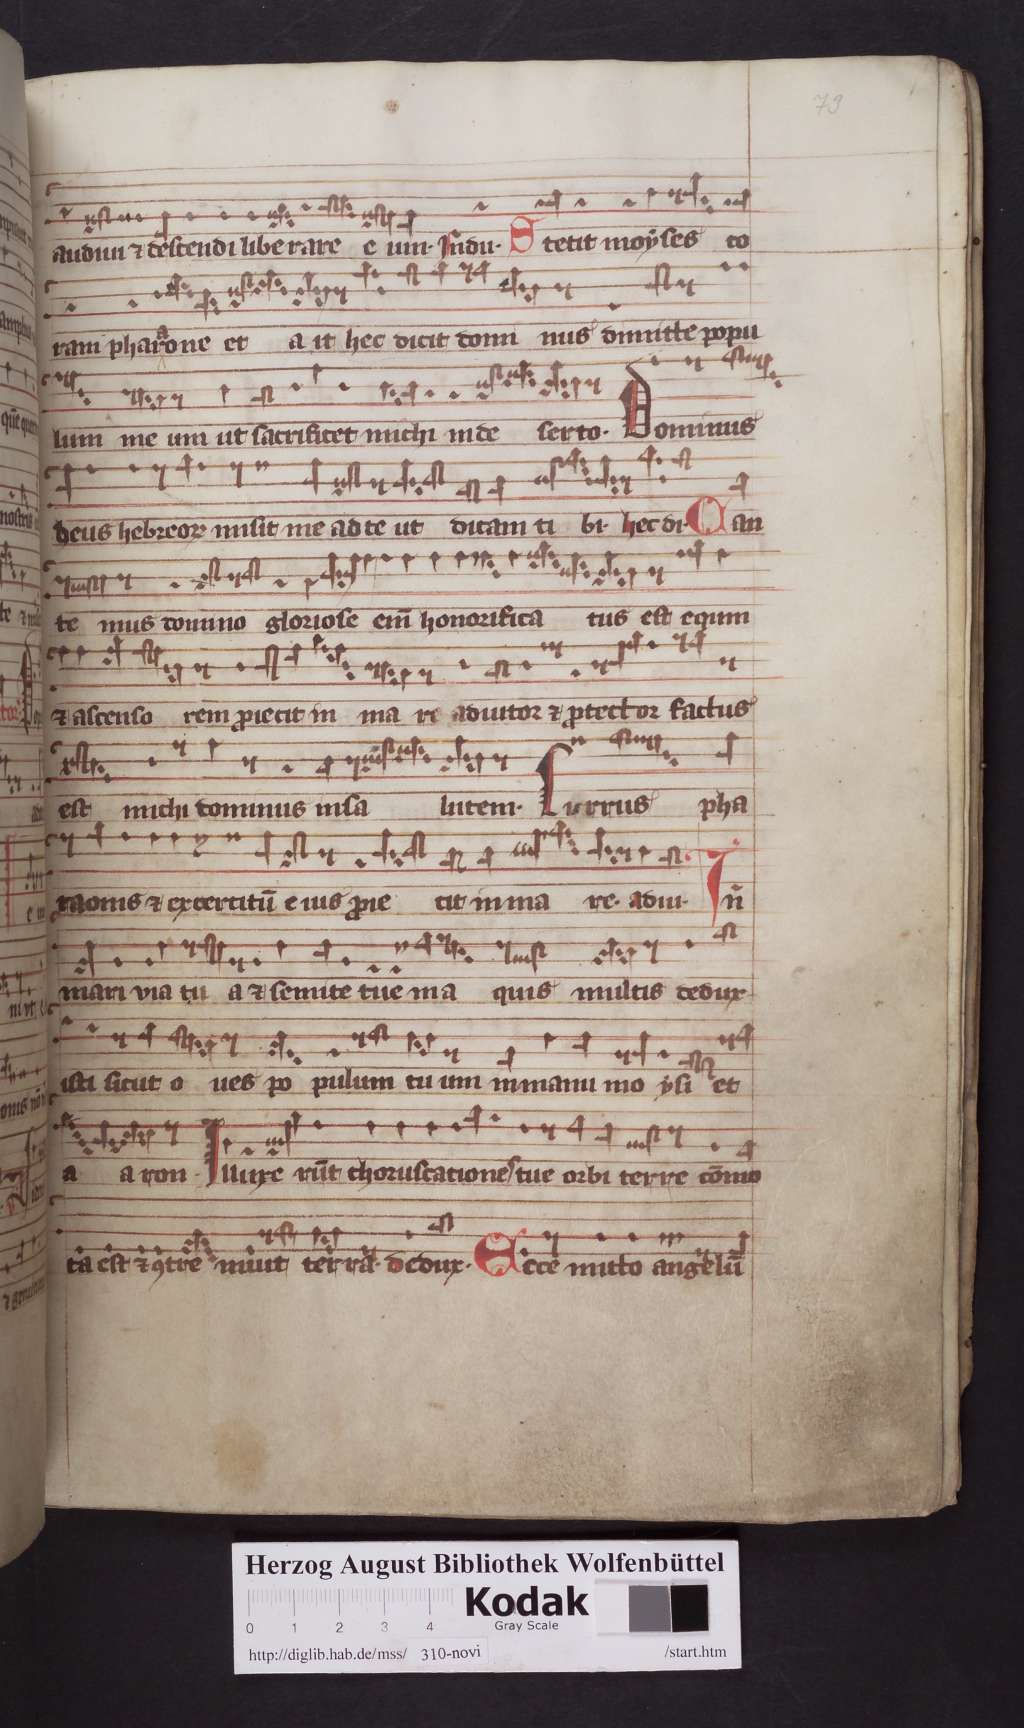 79
audiui ⁊ descendi liberare e um· Indu· Stetit moyses co
ram pharaone et a it hec dicit domi nus dimitte popu
lum me um ut sacrificet michi inde serto· Dominus
deus hebreoꝝ misit me ad te ut dicam ti bi· hec di· Can
te mus domino gloriose em̄ honorifica tus est equum
⁊ ascenso rem ꝓiecit in ma re adiutor ⁊ ꝓtector factus
est michi dominus insa lutem· Currus pha
raonis ⁊ excercitū e ius ꝓie cit in ma re· adiu· In̄
mari via tu a ⁊ semite tue in a quis multis dedux
isti sicut o ues po pulum tu um in manu mo ysi et
a aron· Illuxe rūt choruscationes tue orbi terre cōmo
ta est ⁊ ꝯtre muit terra· dedux· Ecce mitto angelū
Herzog August Bibliothek Wolfenbüttel
0 1 2 3 4
Kodak
Gray Scale
http://diglib.hab.de/mss/ 310-novi /start.htm